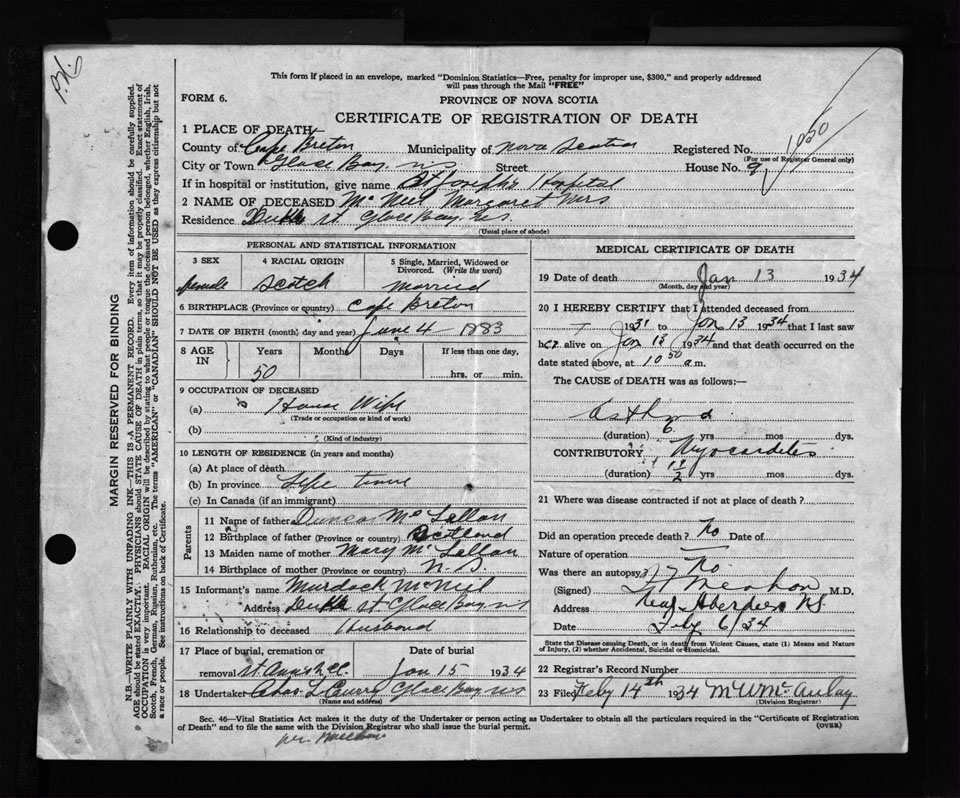 This form if placed in an envelope, marked "Dominion Statistics—Free, penalty for improper use, $300," and properly addressed
will pass through the Mail "FREE"
FORM 6.
PROVINCE OF NOVA SCOTIA
CERTIFICATE OF REGISTRATION OF DEATH
1 PLACE OF DEATH
County of Cape Breton Municipality of Nova Scotia Registered No. 1050
(For use of Registrar General only)
City or Town Glace Bay, NS Street House No. 9
If in hospital or institution, give name St Joseph's Hospital
2 NAME OF DECEASED McNeil Margaret Mrs
Residence St. Glace Bay, N.S.
(Usual place of abode)
PERSONAL AND STATISTICAL INFORMATION
3 SEX 4 RACIAL ORIGIN 5 Single, Married, Widowed or Divorced. (Write the word)
female Scotch married
6 BIRTHPLACE (Province or country) Cape Breton
7 DATE OF BIRTH (month, day and year) June 4 1883
8 AGE IN Years Months Days If less than one day,
50 hrs. or min.
9 OCCUPATION OF DECEASED
(a) House Wife
(Trade or occupation or kind of work)
(b)
(Kind of industry)
10 LENGTH OF RESIDENCE (in years and months)
(a) At place of death
(b) In province Life time
(c) In Canada (if an immigrant)
Parents
11 Name of father Duncan McLellan
12 Birthplace of father (Province or country) Scotland
13 Maiden name of mother Mary McLellan
14 Birthplace of mother (Province or country) N.S.
15 Informant Murdock McNeil
Address St Glace Bay NS
16 Relationship to deceased Husband
17 Place of burial, cremation or removal Date of burial
St Ann's Jan 15 1934
18 Undertaker Chas L Curry Glace Bay NS
(Name and address)
MEDICAL CERTIFICATE OF DEATH
19 Date of death Jan 13 1934
(Month, day and year)
20 I HEREBY CERTIFY that I attended deceased from
1931 to Jan 13 1934 that I last saw
her alive on Jan 13 1934 and that death occurred on the
date stated above, at 10 50 a m.
The CAUSE OF DEATH was as follows:—
Asthma
(duration) 6 yrs mos dys.
CONTRIBUTORY Myocarditis
(duration) yrs mos dys.
21 Where was disease contracted if not at place of death?
Did an operation precede death? No Date of
Nature of operation
Was there an autopsy? No
(Signed) M.D.
Address New Aberdeen NS
Date Feby 6/34
State the Disease causing Death, or in death from Violent Causes, state (1) Means and Nature
of Injury, (2) whether Accidental, Suicidal or Homicidal.
22 Registrar's Record Number
23 Filed Feby 14th 1934 McAulay
(Division Registrar)
Sec. 46—Vital Statistics Act makes it the duty of the Undertaker or person acting as Undertaker to obtain all the particulars required in the "Certificate of Registration
of Death" and to file the same with the Division Registrar who shall issue the burial permit. (OVER)
MARGIN RESERVED FOR BINDING
N.B.—WRITE PLAINLY WITH UNFADING INK—THIS IS A PERMANENT RECORD. Every item of information should be carefully supplied.
AGE should be stated EXACTLY. PHYSICIANS should STATE CAUSE OF DEATH in plain terms, so that it may be properly classified. Exact statement of
OCCUPATION is very important. RACIAL ORIGIN will be described by stating to what people or tongue the deceased person belonged, whether English, Irish,
Scotch, French, German, Russian, Ruthenian, etc. The terms "AMERICAN" or "CANADIAN" SHOULD NOT BE USED as they express citizenship but not
a race or people. See instructions on back of Certificate.